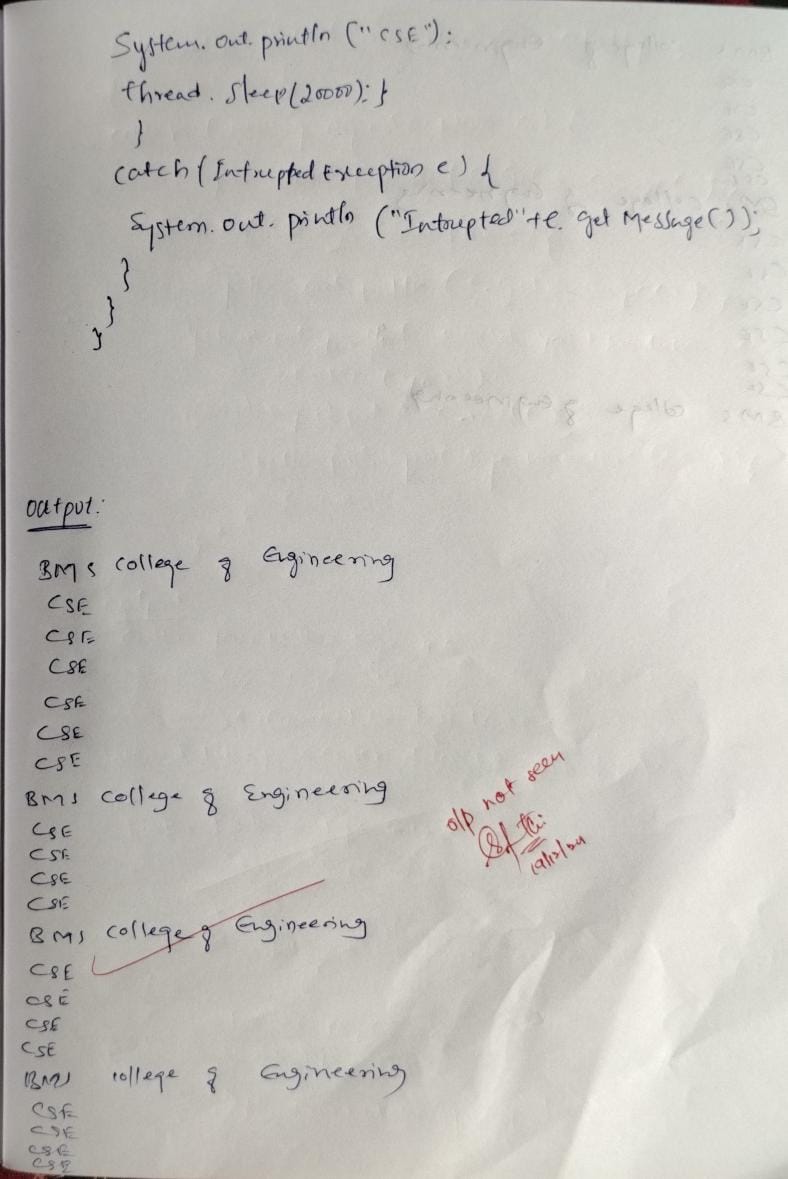 System. out. println ("CSE"):
thread. Sleep(20000): }
}
catch (Intrupted Exception e) {
System. out. println ("Intrupted"+e. get Message());
}
}
}
output:
BMS college of Engineering
CSE
CSE
CSE
CSE
CSE
CSE
BMS college of Engineering
CSE
CSE
CSE
CSE
o/p not seen
19/12/24
BMS college of Engineering
CSE
CSE
CSE
CSE
BMS college of Engineering
CSE
CSE
CSE
CSE